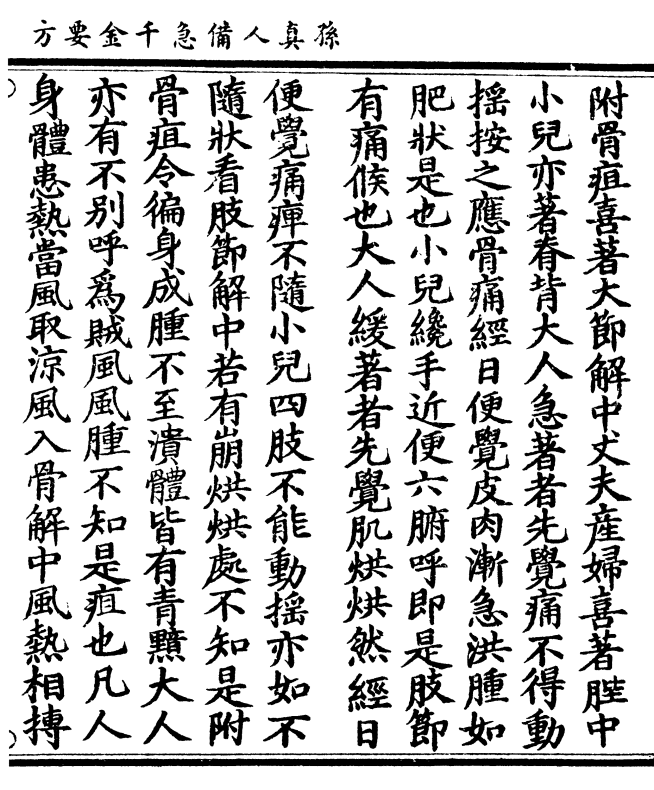 孫真人備急千金要方
附骨疽喜著大節解中丈夫産婦喜著䏶中
小兒亦著脊背大人急著者先覺痛不得動
揺按之應骨痛經日便覺皮肉漸急洪腫如
肥狀是也小兒纔手近便六腑呼即是肢節
有痛候也大人緩著者先覺肌烘烘然經日
便覺痛痺不隨小兒四肢不能動揺亦如不
隨狀看肢節解中若有崩烘烘處不知是附
骨疽令徧身成腫不至潰體皆有青黯大人
亦有不別呼爲賊風風腫不知是疽也凡人
身體患熱當風取涼風入骨解中風熱相摶